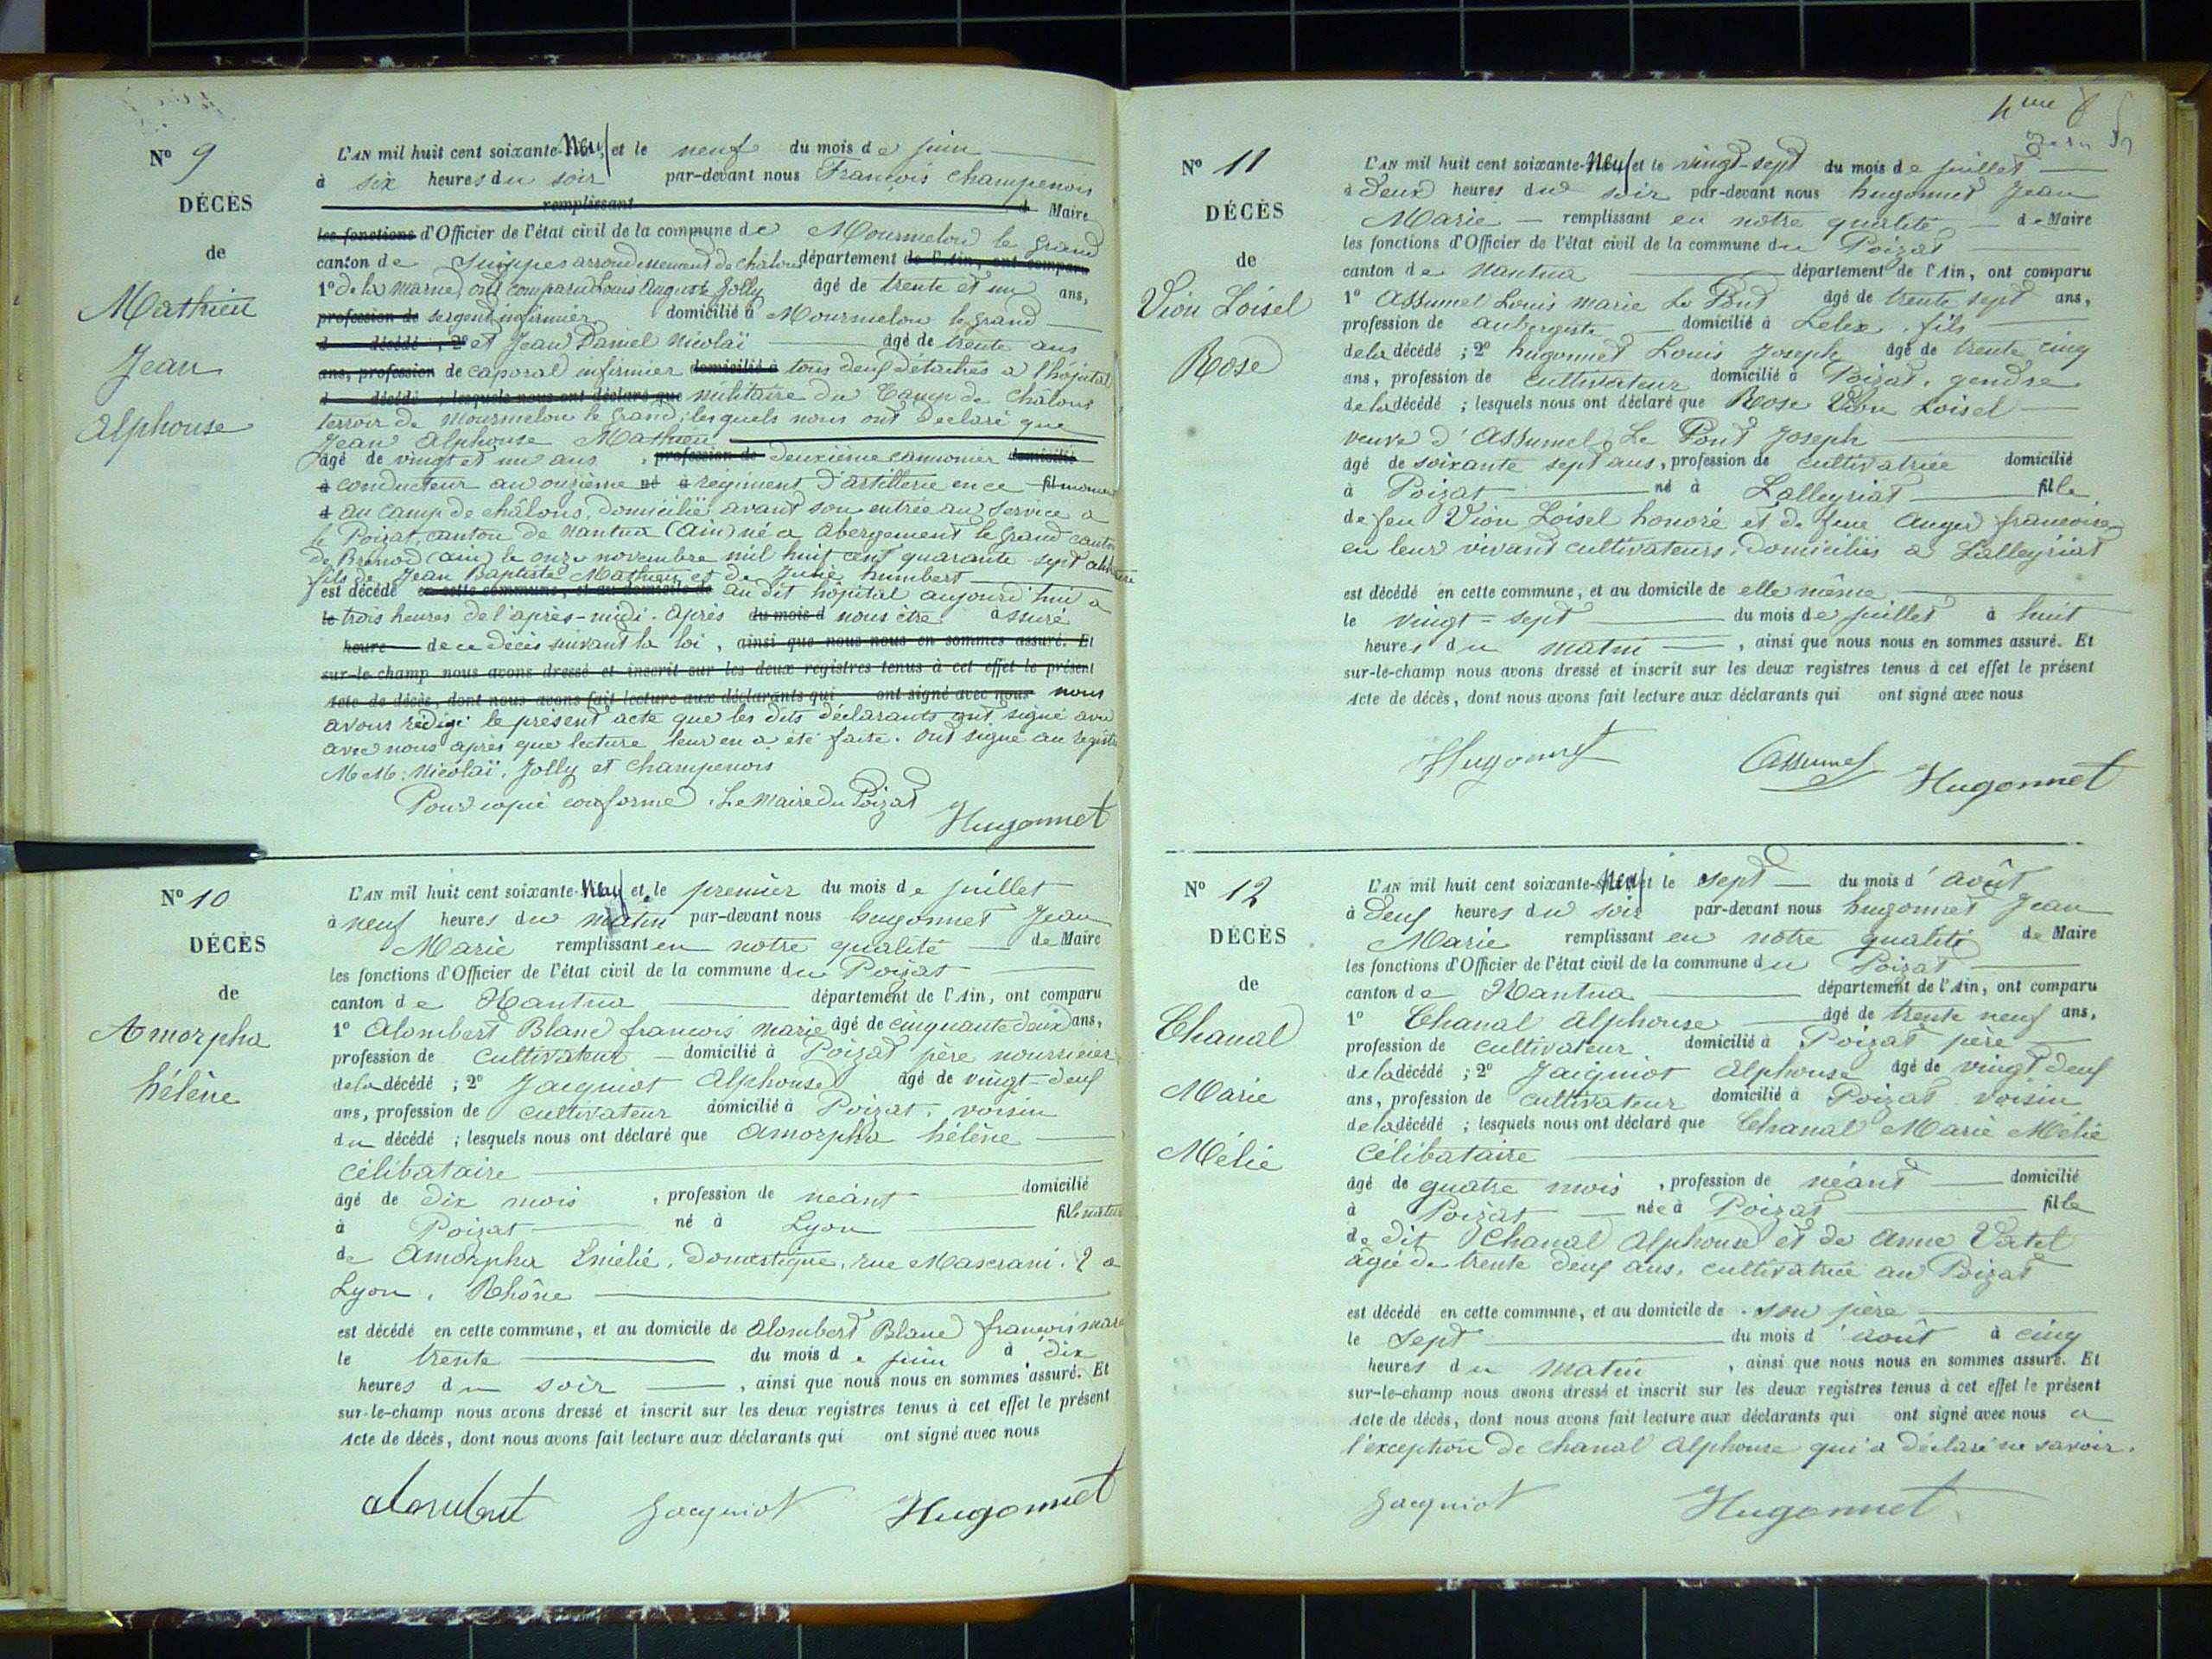 N° 9
DÉCÈS
de
Mathieu
Jean
Alphonse
L'AN mil huit cent soixante-Neuf, et le neuf du mois de juin
à six heures du soir par-devant nous François Champenois
remplissant d Maire
les fonctions d'Officier de l'état civil de la commune de Mourmelon le Grand
canton de Suippes arrondissement de chalons département de l'Ain, ont comparu
1° de la Marne) ont comparu Louis Auguste Jolly âgé de trente et un ans,
profession de sergent infirmier domicilié à Mourmelon le grand
d décédé ; 2° et Jean Daniel Nicolaï âgé de trente ans
ans, profession de caporal infirmier domicilié à tous deux détachés a l'hôpital
d décédé ; lesquels nous ont déclaré que militaire du Camp de Chalons
terroir de Mourmelon le Grand, lesquels nous ont déclaré que
Jean Alphonse Mathieu
âgé de vingt et un ans , profession de deuxième cannonier domicilié
à conducteur au onzième né à régiment d'artillerie en ce fil moment
d au camp de châlons, domicilié avant son entrée au service a
le Poizat, canton de Nantua (Ain) né a Abergement le Grand canton
de Brénod (ain) le onze novembre mil huit cent quarante-sept
fils de Jean Baptiste Mathieu et de Julie humbert
est décédé en cette commune, et au domicile de au dit hôpital aujourd'hui a
le trois heures de l'après-midi. après du mois d nous être à ssuré
heure de ce décès suivant la loi, ainsi que nous nous en sommes assuré. Et
sur-le-champ nous avons dressé et inscrit sur les deux registres tenus à cet effet le présent
Acte de décès, dont nous avons fait lecture aux déclarants qui ont signé avec nous nous
avons rédigé le présent acte que les dits déclarants ont signé avec
avec nous après que lecture leur en a été faite. Ont signé au registre
M M. Nicolaï, Jolly et Champenois
Pour copie conforme. Le Maire du Poizat
Hugonnet
N° 10
DÉCÈS
de
Amorpha
hélène
L'AN mil huit cent soixante-Neuf et le premier du mois de juillet
à neuf heures du matin par-devant nous hugonnet Jean
Marie remplissant en notre qualité de Maire
les fonctions d'Officier de l'état civil de la commune du Poizat
canton de Nantua département de l'Ain, ont comparu
1° Alombert Blanc françois marie âgé de cinquante deux ans,
profession de cultivateur domicilié à Poizat père nourricier
de la décédé ; 2° Jacquiot Alphonse âgé de vingt-deux
ans, profession de cultivateur domicilié à Poizat, voisin
du décédé ; lesquels nous ont déclaré que Amorpha hélène
célibataire
âgé de dix mois , profession de néant domicilié
à Poizat né à Lyon fille
de Amorpha Emélie, Domestique, rue Mascrani. 2 a
Lyon, Rhône
est décédé en cette commune, et au domicile de Alombert Blanc françois marie
le trente du mois de juin à dix
heures du soir , ainsi que nous nous en sommes assuré. Et
sur-le-champ nous avons dressé et inscrit sur les deux registres tenus à cet effet le présent
Acte de décès, dont nous avons fait lecture aux déclarants qui ont signé avec nous
Alombert Jacquiot Hugonnet
4me
N° 11
DÉCÈS
de
Vion Loisel
Rose
L'AN mil huit cent soixante-Neuf et le vingt-sept du mois de juillet
à Deux heures du soir par-devant nous hugonnet Jean
Marie remplissant en notre qualité de Maire
les fonctions d'Officier de l'état civil de la commune du Poizat
canton de Nantua département de l'Ain, ont comparu
1° Assumel Louis Marie Le Pont âgé de trente sept ans,
profession de aubergiste domicilié à Lelex, fils
de la décédé ; 2° hugonnet Louis Joseph âgé de trente cinq
ans, profession de cultivateur domicilié à Poizat, gendre
de la décédé ; lesquels nous ont déclaré que Rose Vion Loisel
veuve d'Assumel Le Pont Joseph
âgé de soixante sept ans, profession de cultivatrice domicilié
à Poizat né à Lalleyriat fille
de feu Vion Loisel honoré et de feue Auger françoise
en leur vivant cultivateurs, domiciliés a Lalleyriat
est décédé en cette commune, et au domicile de elle même
le vingt-sept du mois de juillet à huit
heures du matin , ainsi que nous nous en sommes assuré. Et
sur-le-champ nous avons dressé et inscrit sur les deux registres tenus à cet effet le présent
Acte de décès, dont nous avons fait lecture aux déclarants qui ont signé avec nous
Hugonnet Assumel Hugonnet
N° 12
DÉCÈS
de
Chanal
Marie
Mélie
L'AN mil huit cent soixante-Neuf et le sept du mois d'août
à deux heures du soir par-devant nous hugonnet Jean
Marie remplissant en notre qualité de Maire
les fonctions d'Officier de l'état civil de la commune du Poizat
canton de Nantua département de l'Ain, ont comparu
1° Chanal Alphonse âgé de trente neuf ans,
profession de cultivateur domicilié à Poizat père
de la décédé ; 2° Jacquiot Alphonse âgé de vingt deux
ans, profession de cultivateur domicilié à Poizat voisin
de la décédé ; lesquels nous ont déclaré que Chanal Marie Mélie
célibataire
âgé de quatre mois , profession de néant domicilié
à Poizat née à Poizat fille
de dit Chanal Alphonse et de Anne Vatel
âgée de trente deux ans, cultivatrice au Poizat
est décédé en cette commune, et au domicile de son père
le Sept du mois d'août à cinq
heures du matin , ainsi que nous nous en sommes assuré. Et
sur-le-champ nous avons dressé et inscrit sur les deux registres tenus à cet effet le présent
Acte de décès, dont nous avons fait lecture aux déclarants qui ont signé avec nous a
l'exception de Chanal Alphonse qui a déclaré ne savoir.
Jacquiot Hugonnet